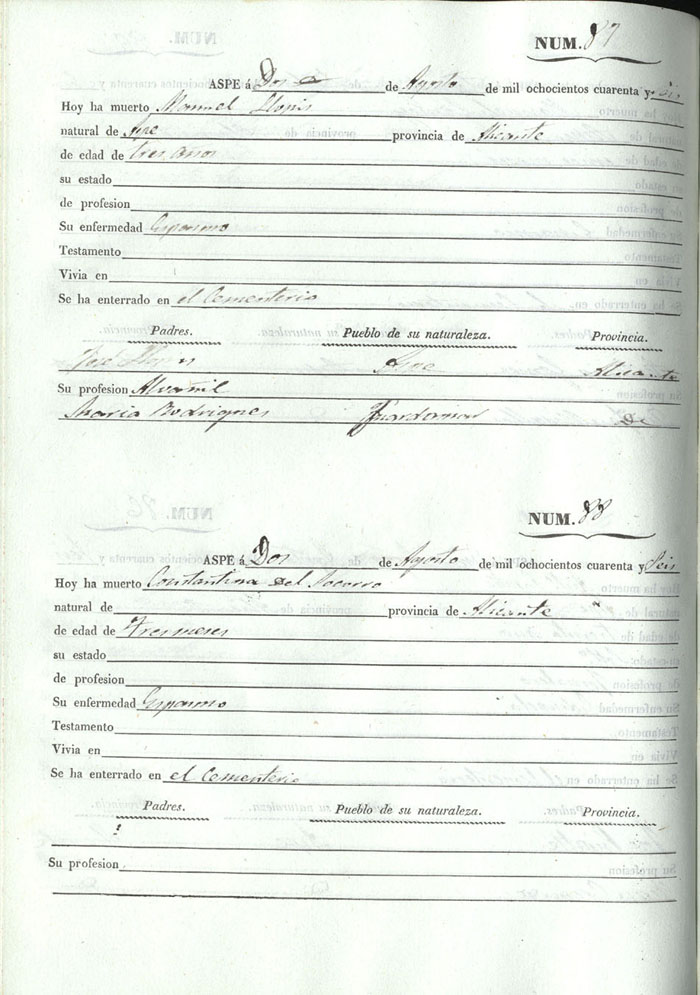 NUM. 87
ASPE á Dos de Agosto de mil ochocientos cuarenta y seis
Hoy ha muerto Manuel Llopis
natural de Aspe provincia de Alicante
de edad de tres años
su estado
de profesion
Su enfermedad Espasmo
Testamento
Vivia en
Se ha enterrado en el Cementerio
Padres. Pueblo de su naturaleza. Provincia.
José Llopis Aspe Alicante
Su profesion Alvañil
Maria Rodrigues Guardamar
NUM. 88
ASPE á Dos de Agosto de mil ochocientos cuarenta y Seis
Hoy ha muerto Constantina del Socorro
natural de provincia de Alicante
de edad de Tres meses
su estado
de profesion
Su enfermedad Espasmo
Testamento
Vivia en
Se ha enterrado en el Cementerio
Padres. Pueblo de su naturaleza. Provincia.
?
Su profesion